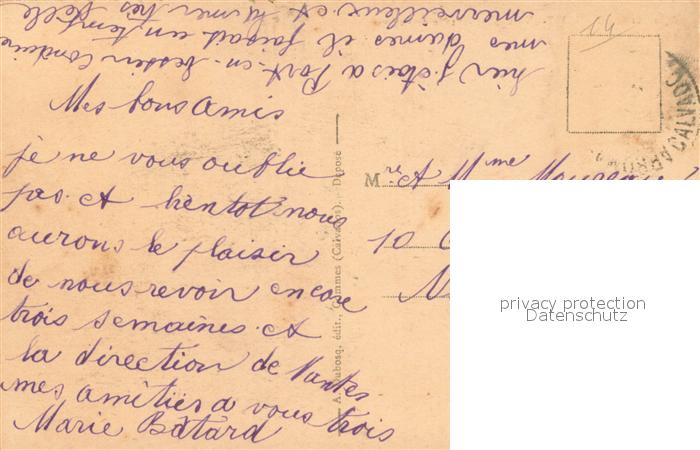 Mes bons amis
je ne vous oublie
pas. et bientot nous
aurons le plaisir
de nous revoir encore
trois semaines. et
la direction de Nantes
mes amitiés a vous trois
Marie Batard
hier j'etais a Port-en-Bessin conduire
mes dames il faisait un temps
merveilleux et la mer tres belle
A. Dubosq, édit., Commes (Calvados). - Déposé
14
CALVADOS
Mr et Mme
10
privacy protection
Datenschutz